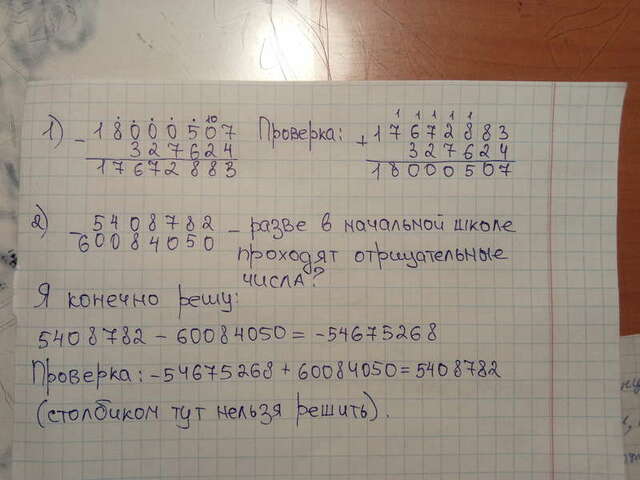 1) - 18000507 Проверка: + 17672883
327624 327624
17672883 18000507
2) - 5408782 - разве в начальной школе
60084050 проходят отрицательные
числа?
Я конечно решу:
5408782 - 60084050 = -54675268
Проверка: -54675268 + 60084050 = 5408782
(столбиком тут нельзя решить).